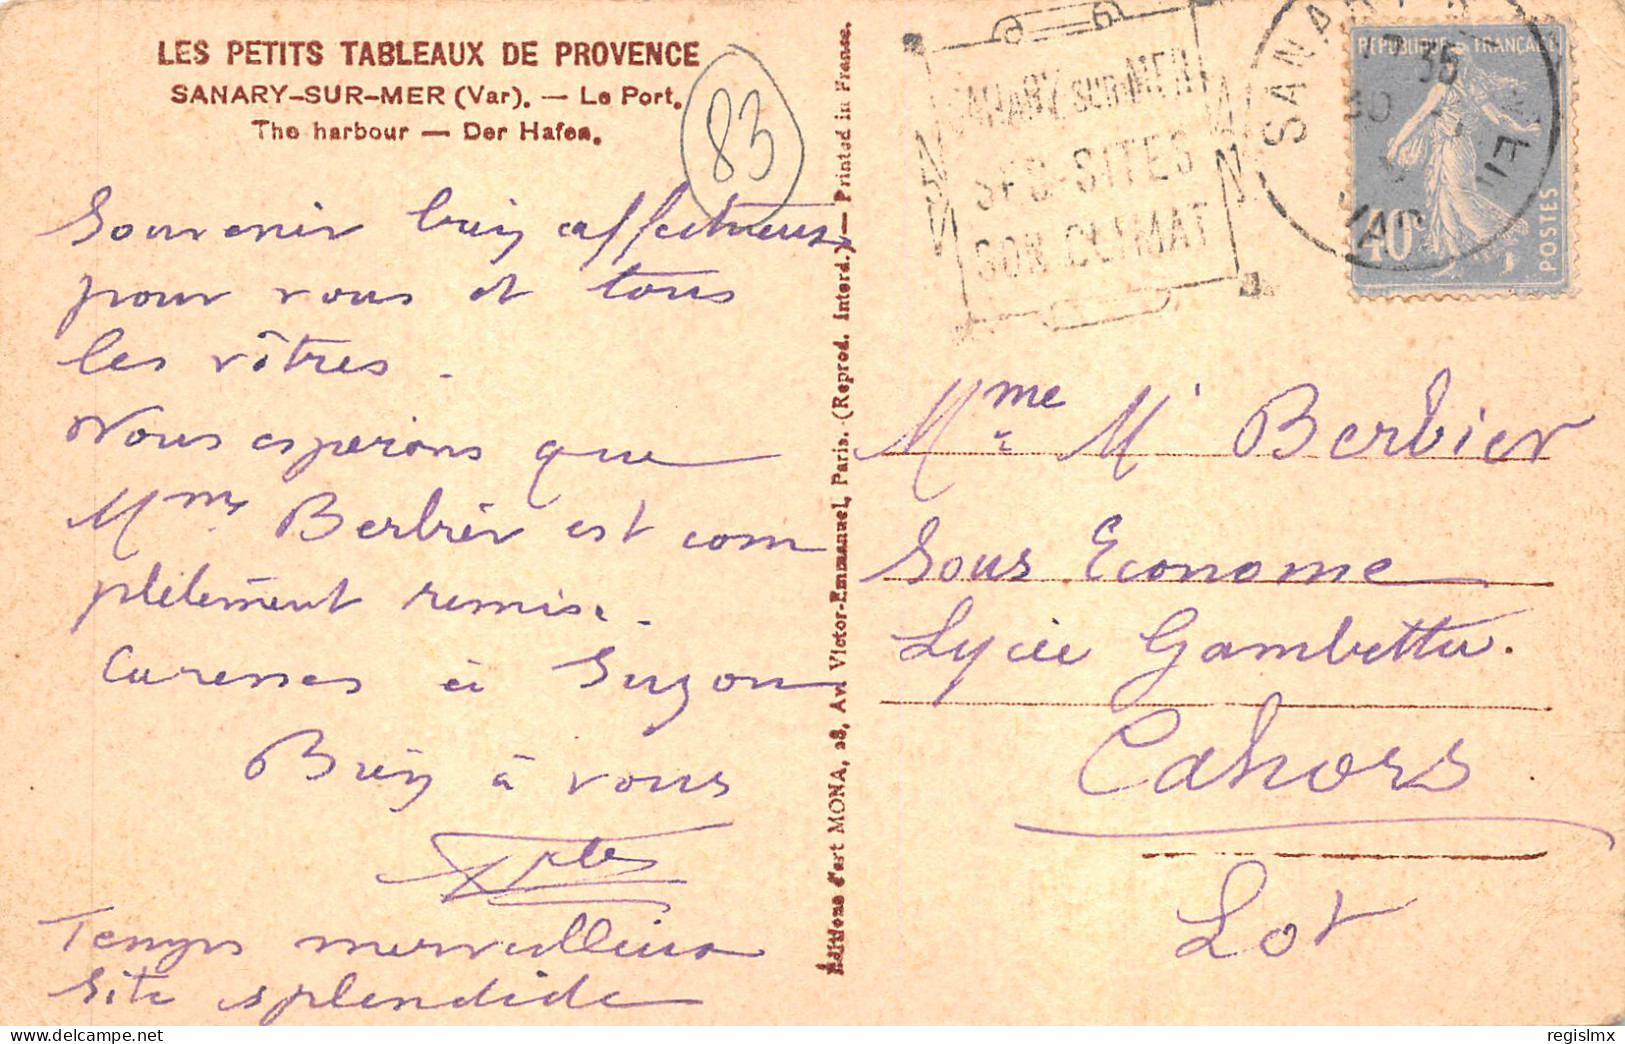 LES PETITS TABLEAUX DE PROVENCE
SANARY-SUR-MER (Var). — Le Port.
The harbour — Der Hafen.
83
Souvenir bien affectueux
pour vous et tous
les vôtres.
Nous espérons que
Mme Berbier est com
plètement remise.
Caresses à Suzon
Bien à vous
Temps merveilleux
Site splendide
Éditions d'art MONA, 28, Av. Victor-Emmanuel, Paris. (Reprod. Interd.) — Printed in France.
SANARY SUR-MER
SES-SITES
SON CLIMAT
SANARY
MER
VAR
35
RÉPUBLIQUE FRANÇAISE
40c
POSTES
Mme & Mr Berbier
Sous Econome
Lycée Gambetta.
Cahors
Lot
regislmx